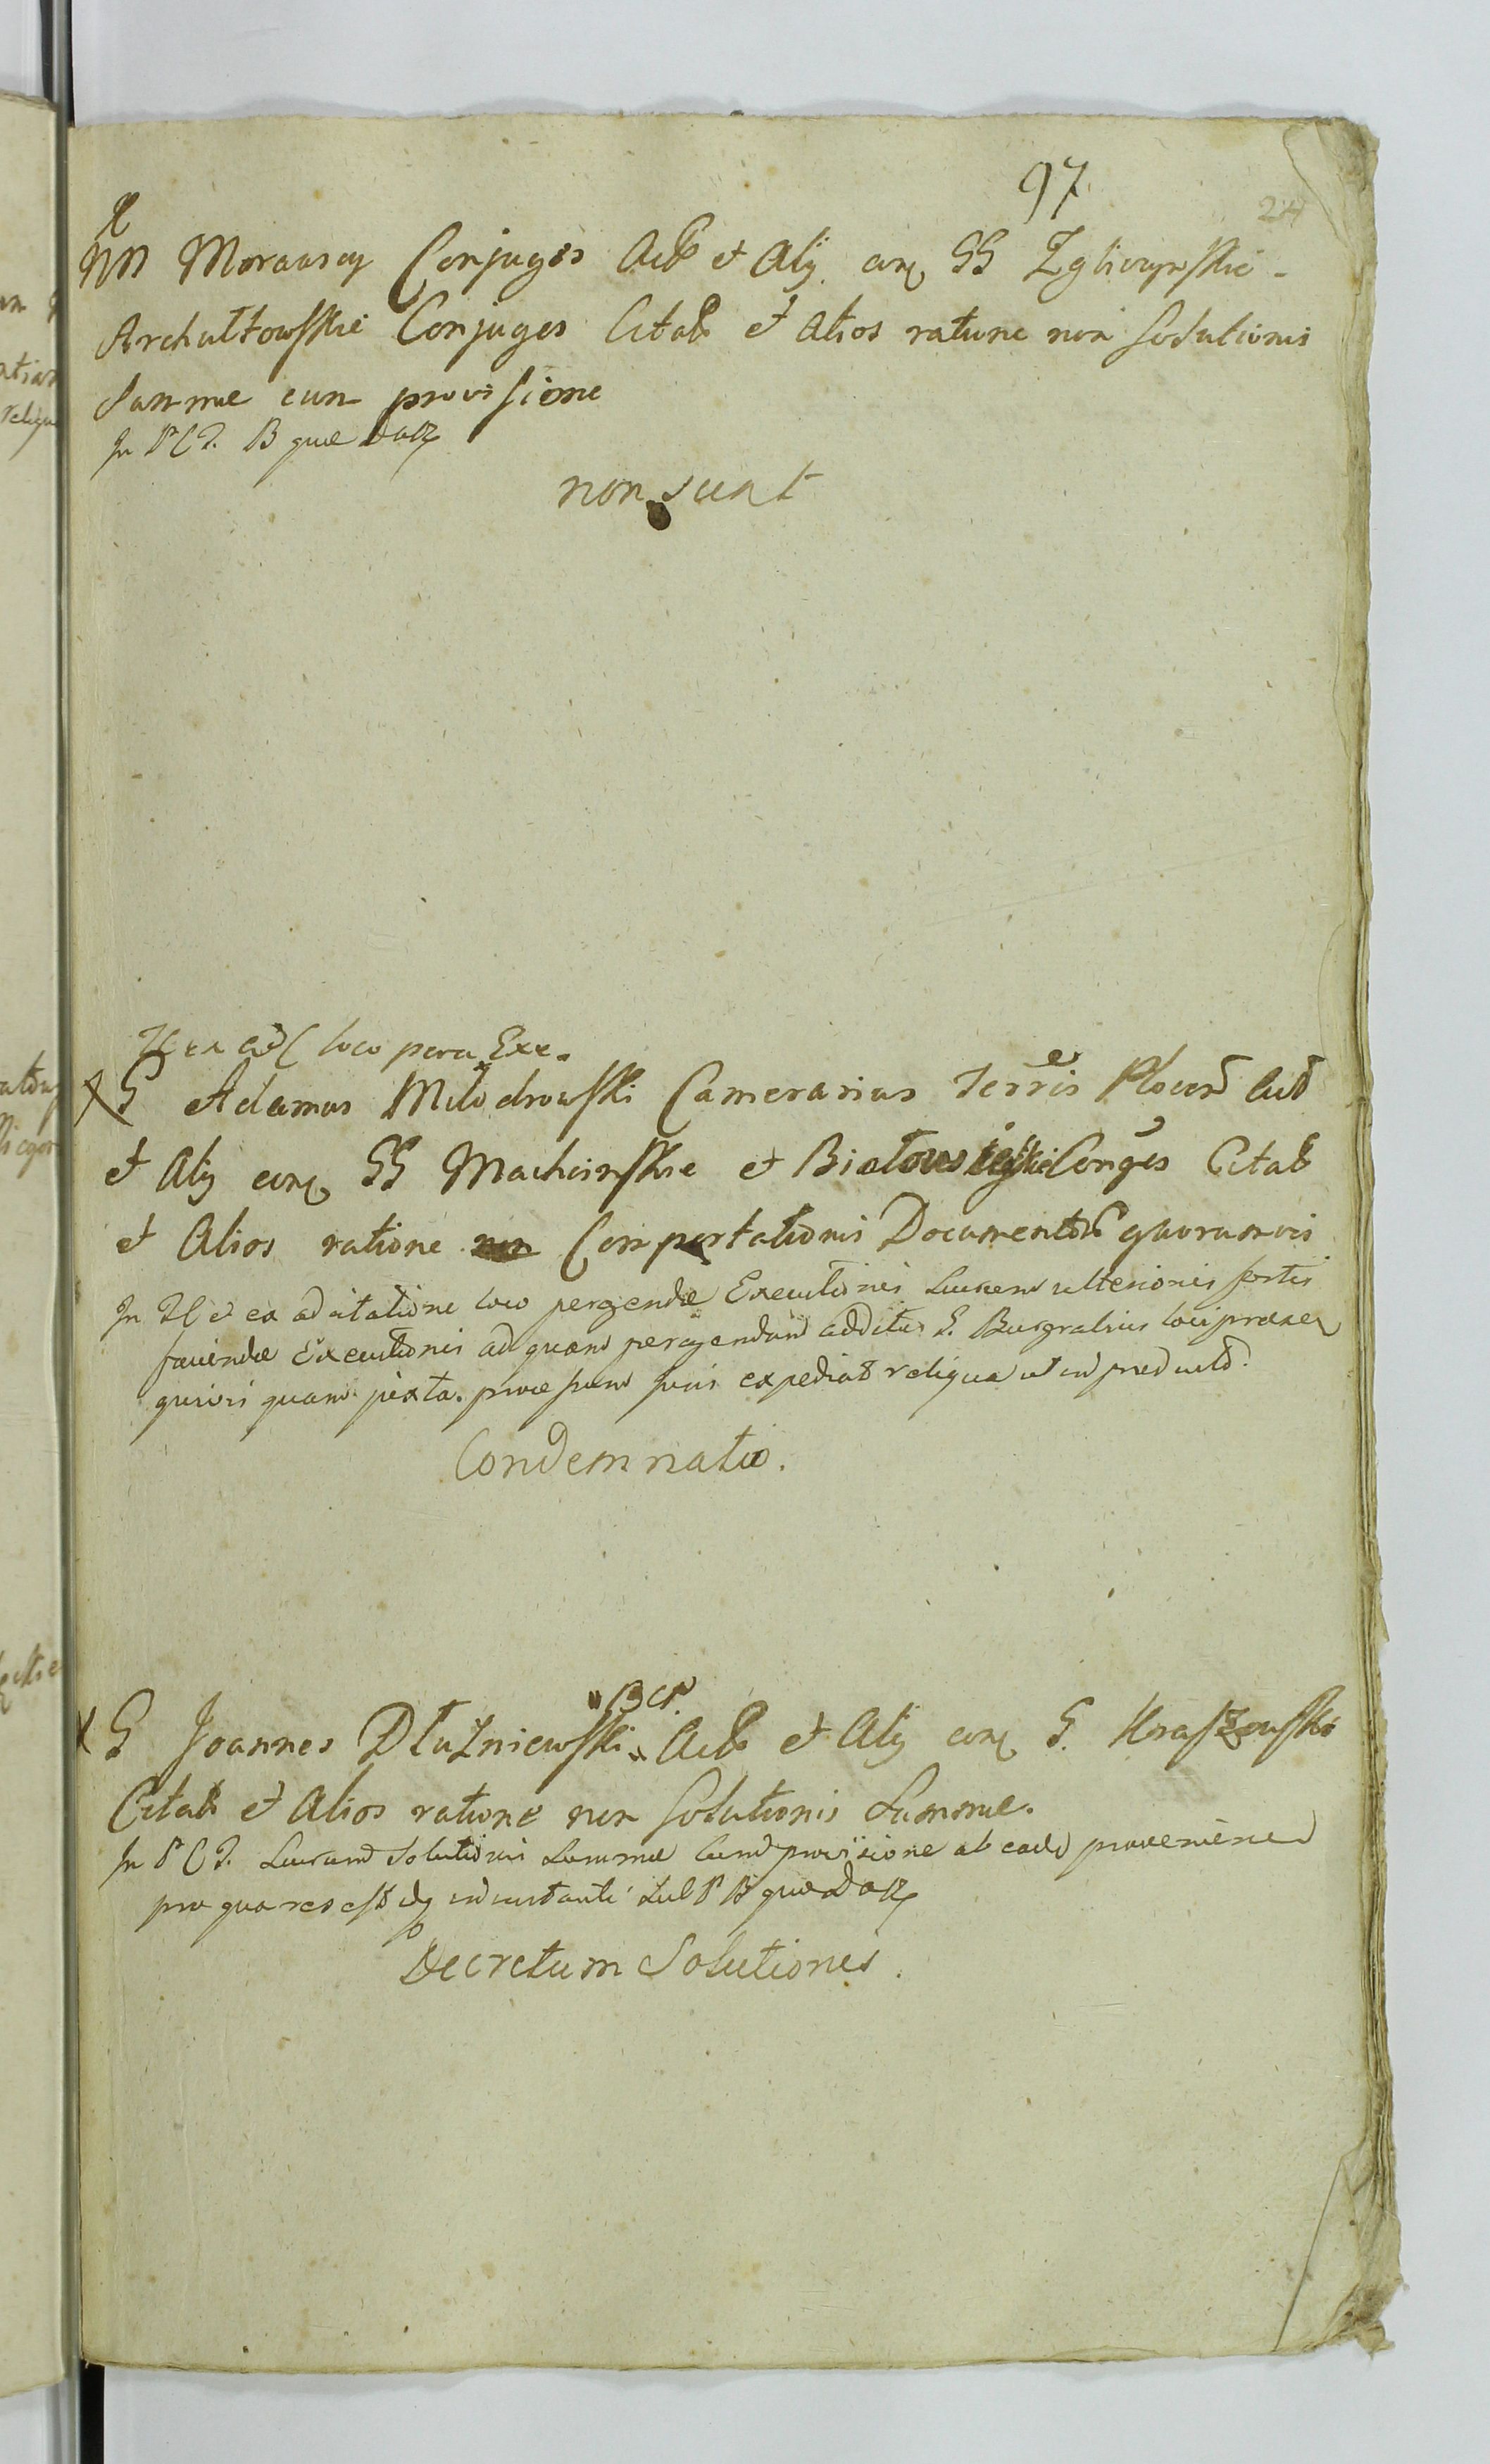 97
24
MM Morawscy Conjuges Act et Alij cum GG Zgliczynskie
Archutowskie Conjuges Citat et Alios ratione non Solutionis
Summe cum provisione
In PCT. B que
non sunt
loco pera Exe.
G Adamus Milodrowski Camerarius Terris Plocen Act
et Alij cum GG Machcinskie et Conges Citat
et Alios ratione non Comportationis Documentor quorumvis
In et ex adcitatione loco pergendæ Executionis Lucrum ulterioris fortis
faciendæ Executionis ad quam peragendam additus G. Burgrabius loci
quivis quam juxta processum suis expediat reliqua ut in
Condemnatio.
G Joannes Dlużniewski Act et Alij cum G. Kraszewski
Citat et Alios ratione non Solutionis Summe.
In PCT. Lucrum Solutionis Summæ cum provisione ab eadd proveniend
pro qua res est in instanti sub P B que
Decretum Solutionis.